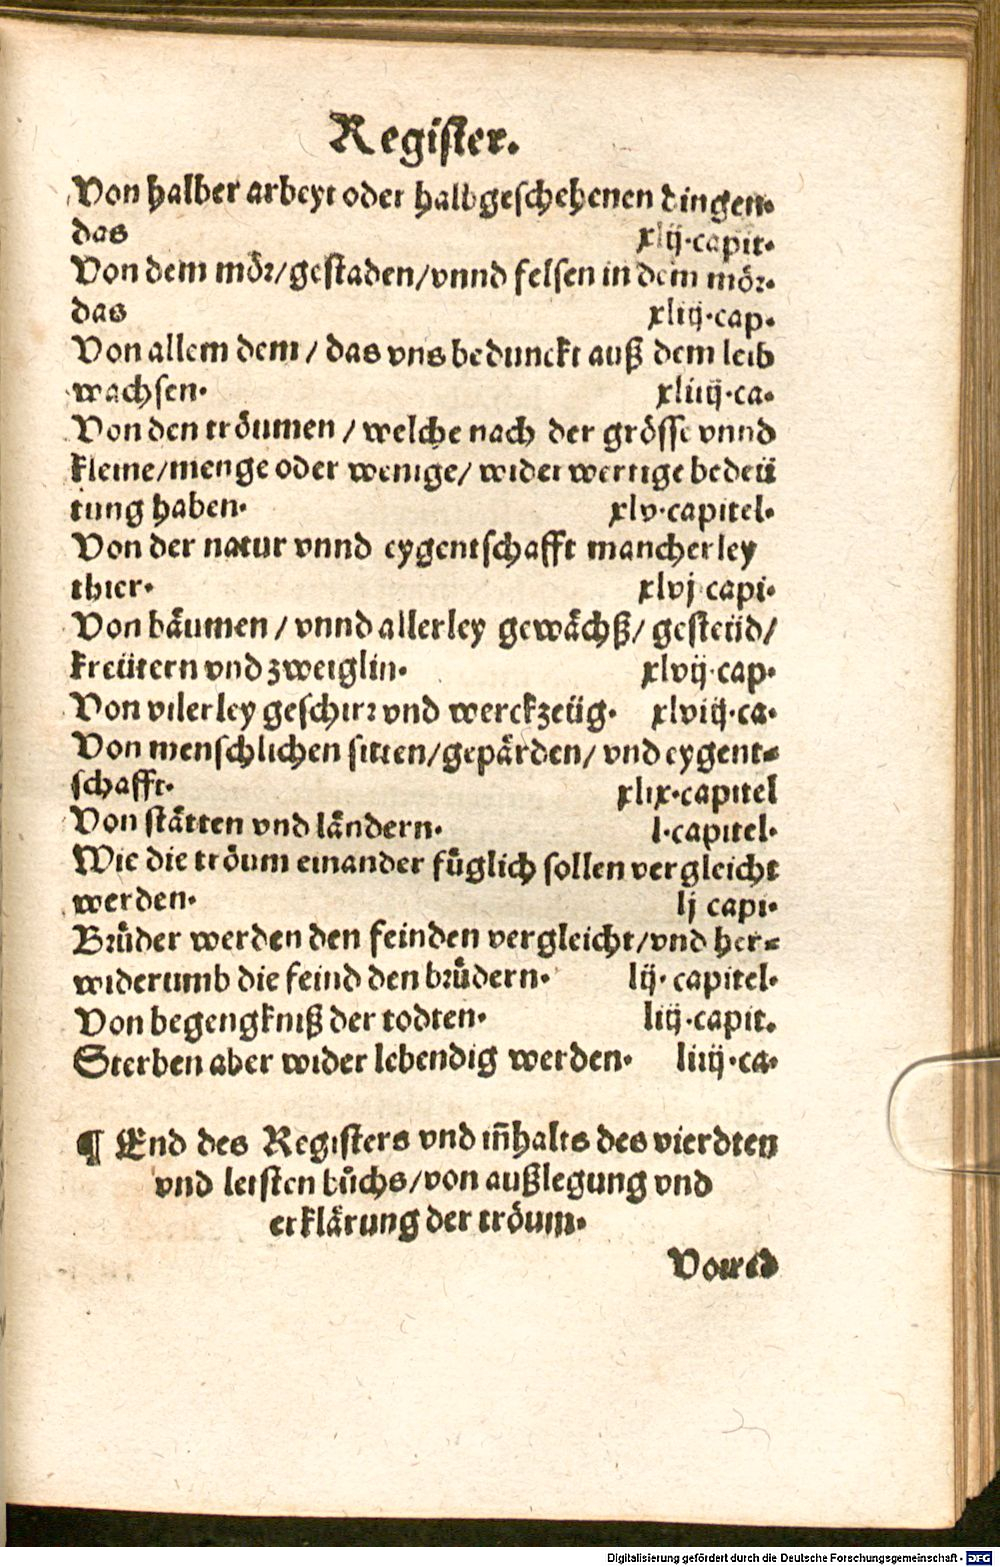 Register.
Von halber arbeyt oder halbgeschehenen dingen.
das xlij.capit.
Von dem mör/gestaden/vnnd felsen in dem mör.
das xliij.cap.
Von allem dem / das vns bedunckt auß dem leib
wachsen. xliiij.ca.
Von den tröumen / welche nach der grösse vnnd
kleine/menge oder wenige/ widerwertige bedeü
tung haben. xlv.capitel.
Von der natur vnnd eygentschafft mancherley
thier. xlvj capi.
Von bäumen / vnnd allerley gewächß/ gesteüd/
kreütern vnd zweiglin. xlvij.cap.
Von vilerley geschirr vnd werckzeüg. xlviij.ca.
Von menschlichen sitten/gepärden/ vnd eygent-
schafft. xlix.capitel
Von stätten vnd ländern. l.capitel.
Wie die tröum einander füglich sollen vergleicht
werden. lj capi.
Brüder werden den feinden vergleicht/vnd her-
widerumb die feind den brüdern. lij. capitel.
Von begengkniß der todten. liij.capit.
Sterben aber wider lebendig werden. liiij.ca.
¶ End des Registers vnd iñhalts des vierdten
vnd letsten bůchs/von außlegung vnd
erklärung der tröum.
Vorred
Digitalisierung gefördert durch die Deutsche Forschungsgemeinschaft - DFG